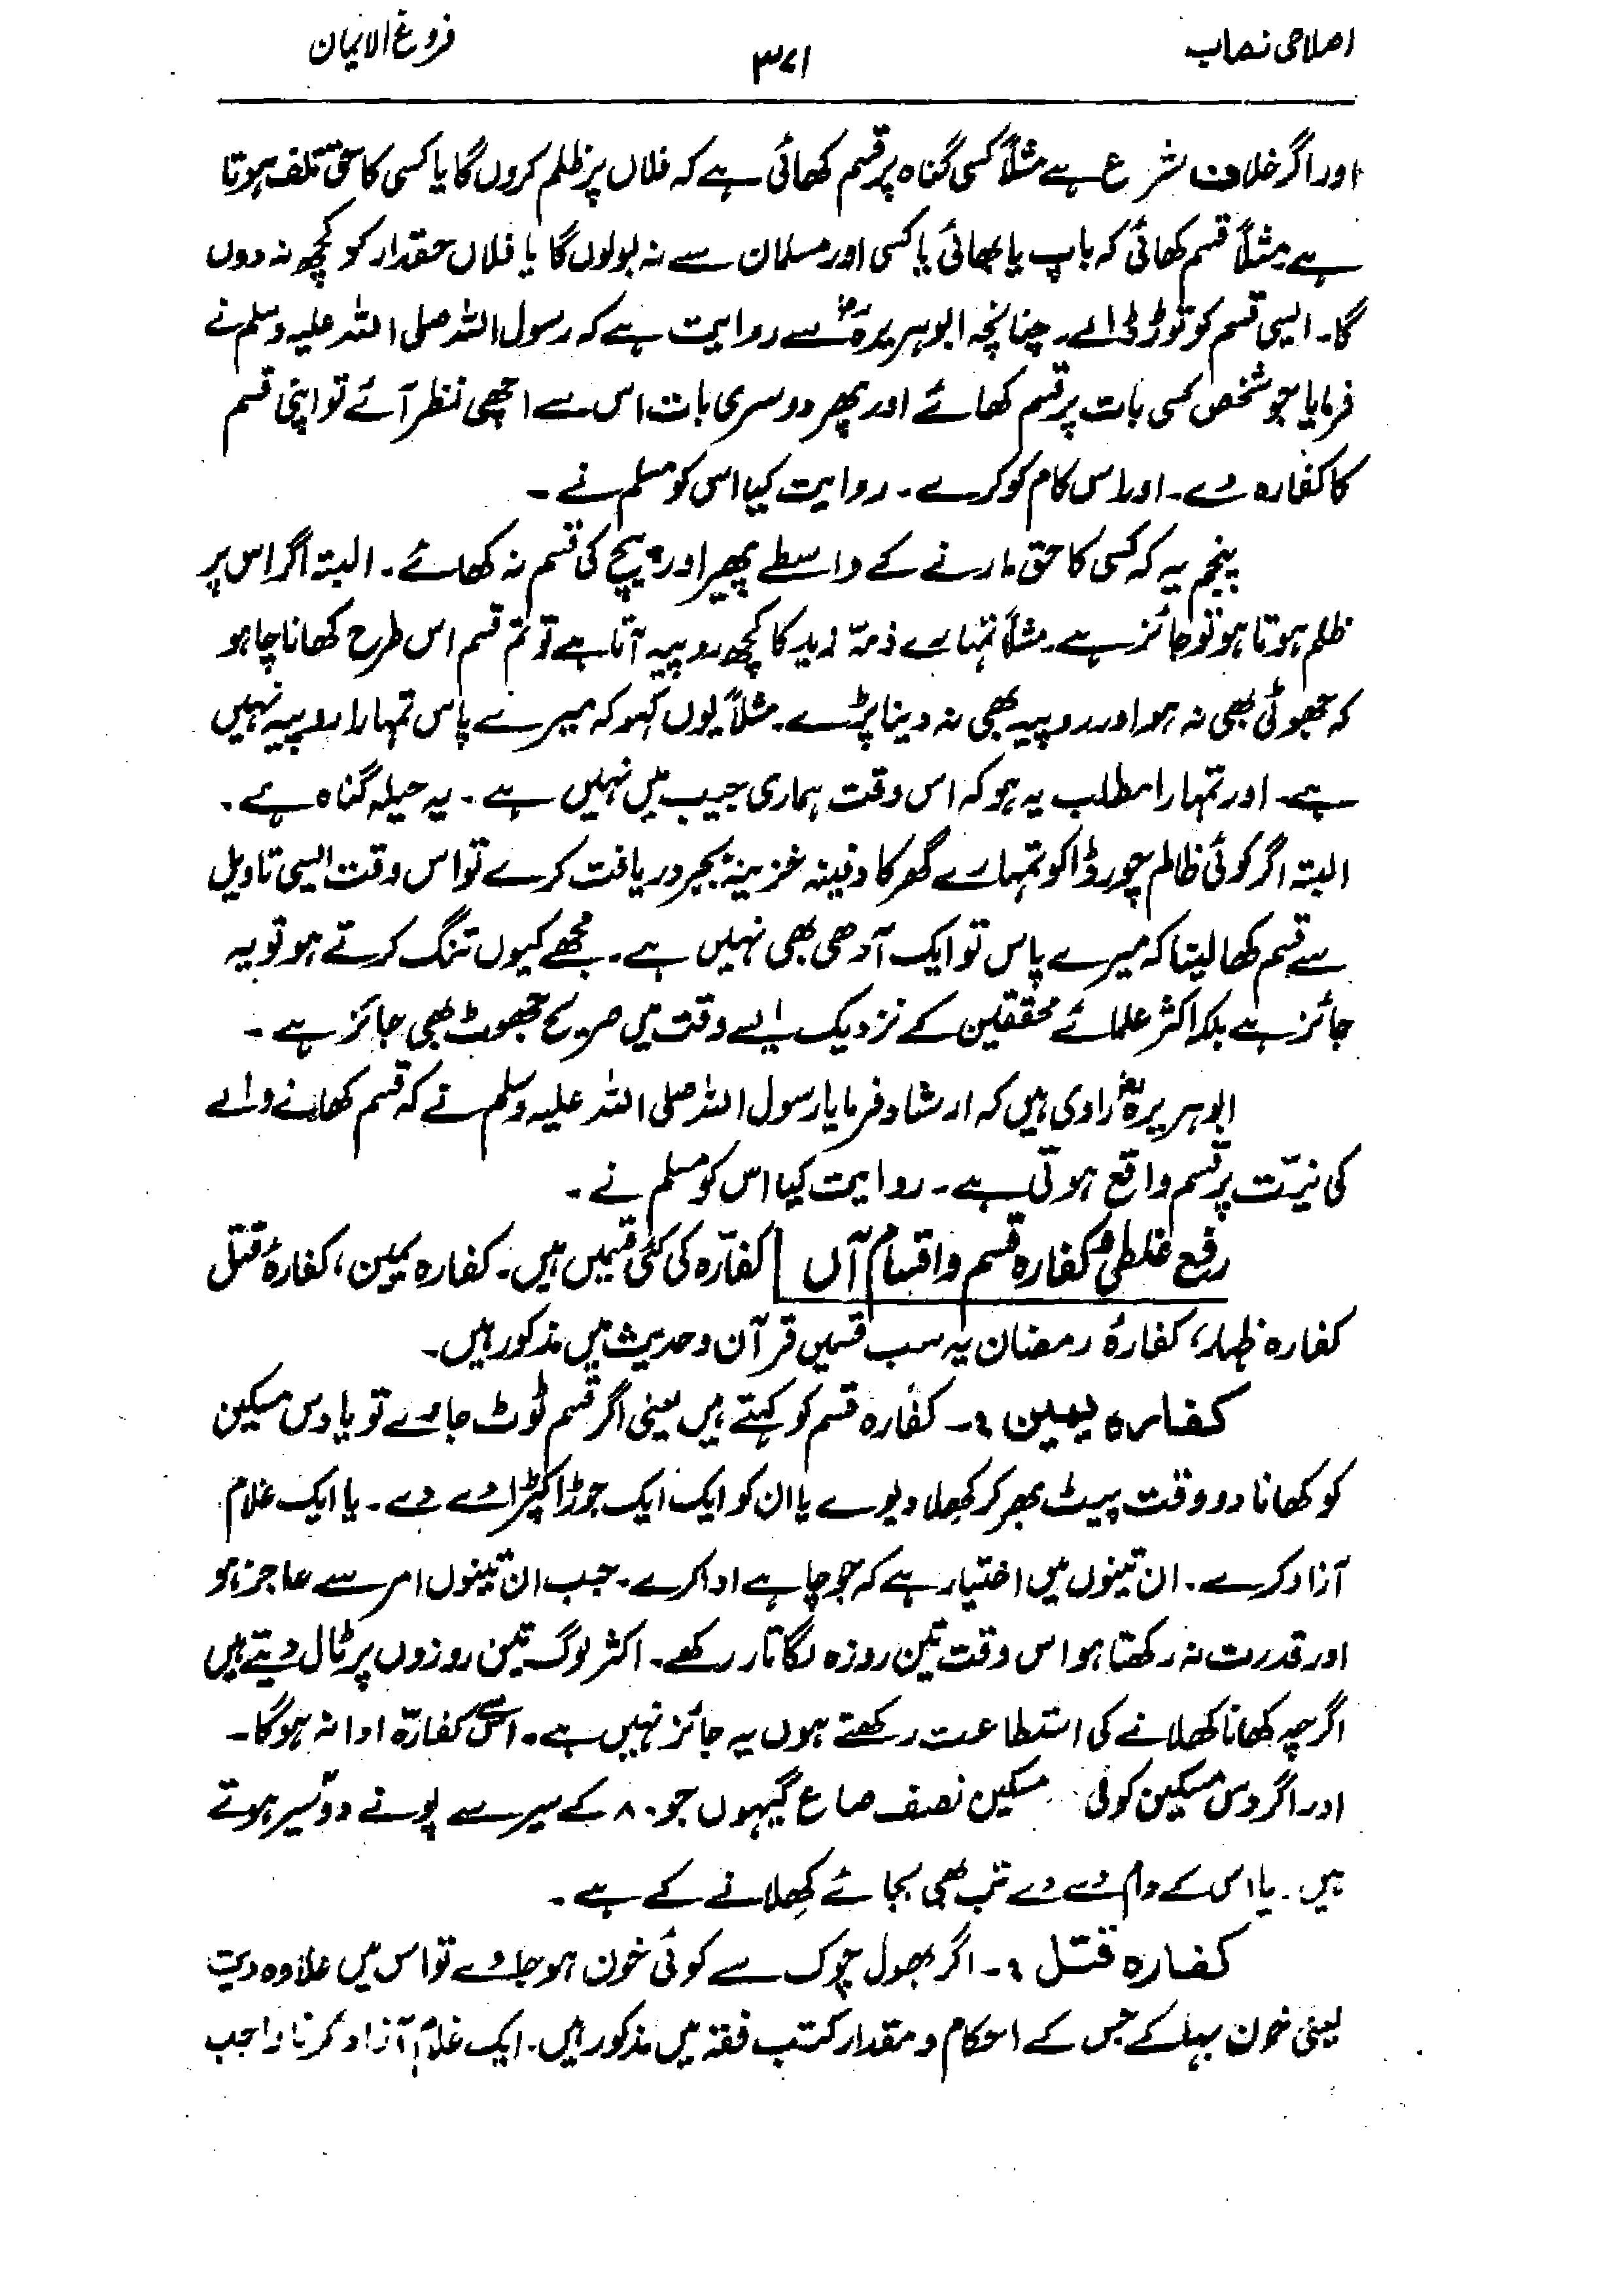 اصلاحی نصاب
۳۷۱
فروع الایمان
اور اگر خلاف شرع ہے مثلاً کسی گناہ پر قسم کھائی ہے کہ فلاں پر ظلم کروں گا یا کسی کا حق تلف ہوتا
ہے مثلاً قسم کھائی کہ باپ یا بھائی یا کسی اور مسلمان سے نہ بولوں گا یا فلاں حقدار کو کچھ نہ دوں
گا۔ ایسی قسم کو توڑ ڈالے۔ چنانچہ ابوہریرہؓ سے روایت ہے کہ رسول اللہ صلی اللہ علیہ وسلم نے
فرمایا جو شخص کسی بات پر قسم کھائے اور پھر دوسری بات اس سے اچھی نظر آئے تو اپنی قسم
کا کفارہ دے۔ اور اس کام کو کرے۔ روایت کیا اس کو مسلم نے۔
پنجم یہ کہ کسی کا حق مارنے کے واسطے پھیر اور پیچ کی قسم نہ کھائے۔ البتہ اگر اس پر
ظلم ہوتا ہو تو جائز ہے۔ مثلاً تمہارے ذمہ زید کا کچھ روپیہ آتا ہے تو تم قسم اس طرح کھانا چاہو
کہ جھوٹی بھی نہ ہو اور روپیہ بھی نہ دینا پڑے۔ مثلاً یوں کہو کہ میرے پاس تمہارا روپیہ نہیں
ہے۔ اور تمہارا مطلب یہ ہو کہ اس وقت ہماری جیب میں نہیں ہے۔ یہ حیلہ گناہ ہے۔
البتہ اگر کوئی ظالم چور ڈاکو تمہارے گھر کا دفینہ خزینہ بجبر دریافت کرے تو اس وقت ایسی تاویل
سے قسم کھا لینا کہ میرے پاس تو ایک آدھی بھی نہیں ہے۔ مجھے کیوں تنگ کرتے ہو تو یہ
جائز ہے بلکہ اکثر علمائے محققین کے نزدیک ایسے وقت میں صریح جھوٹ بھی جائز ہے۔
ابوہریرہؓ راوی ہیں کہ ارشاد فرمایا رسول اللہ صلی اللہ علیہ وسلم نے کہ قسم کھانے والے
کی نیّت پر قسم واقع ہوتی ہے۔ روایت کیا اس کو مسلم نے۔
رفع غلطی و کفارہ قسم واقسام آں کفارّہ کی کئی قسمیں ہیں۔ کفارہ یمین، کفارۂ قتل
کفارہ ظہار، کفارۂ رمضان یہ سب قسمیں قرآن وحدیث میں مذکور ہیں۔
کفارہ یمین :۔ کفارہ قسم کو کہتے ہیں یعنی اگر قسم ٹوٹ جاوے تو یا دس مسکین
کو کھانا دو وقت پیٹ بھر کر کھلا دیوے یا ان کو ایک ایک جوڑا کپڑا دے دے۔ یا ایک غلام
آزاد کرے۔ ان تینوں میں اختیار ہے کہ جو چاہے ادا کرے۔ جب ان تینوں امر سے عاجز ہو
اور قدرت نہ رکھتا ہو اس وقت تین روزہ لگاتار رکھے۔ اکثر لوگ تین روزوں پر ٹال دیتے ہیں
اگرچہ کھانا کھلانے کی استطاعت رکھتے ہوں یہ جائز نہیں ہے۔ اس سے کفارّہ ادا نہ ہوگا۔
اور اگر دس مسکین کو فی مسکین نصف صاع گیہوں جو ۸۰ کے سیر سے پونے دو سیر ہوتے
ہیں۔ یا اس کے دام دے دے تب بھی بجائے کھلانے کے ہے۔
کفارہ قتل :۔ اگر بھول چوک سے کوئی خون ہو جاوے تو اس میں علاوہ دیت
یعنی خون بہا کے جس کے احکام ومقدار کتب فقہ میں مذکور ہیں۔ ایک غلام آزاد کرنا واجب